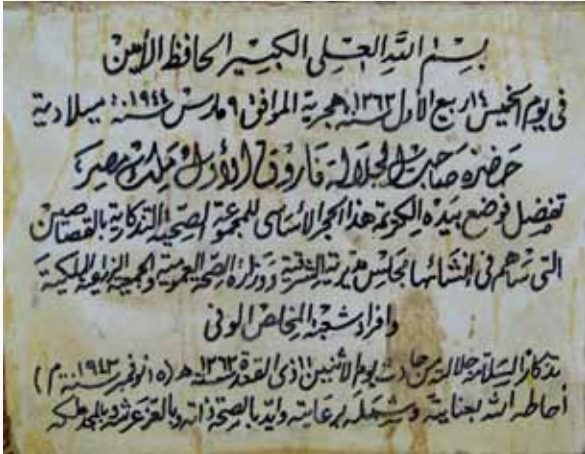 بسم الله العلى الكبير الحافظ الأمين
فى يوم الخميس ١٤ ربيع الأول سنة ١٣٦٣ هجرية الموافق ٩ مارس سنة ١٩٤٤ ميلادية
حضرة صاحب الجلالة فاروق الأول ملك مصر
تفضل فوضع بيده الكريمة هذا الحجر الأساسى للمجموعة الصحية التذكارية بالقصاصين
التى ساهم فى إنشائها مجلس مديرية الشرقية ووزارة الصحة العمومية والجمعية الزراعية الملكية
وأفراد شعبة المخلص الوفى
تذكارا لسلامة جلالته من حادث يوم الاثنين ١٦ ذى القعدة سنة ١٣٦٢ هـ (١٥ نوفمبر سنة ١٩٤٣ م)
أحاطه الله بعنايته وشمله برعايته وأيد بالصحة ذاته وبالعز عرشه وبالمجد ملكه